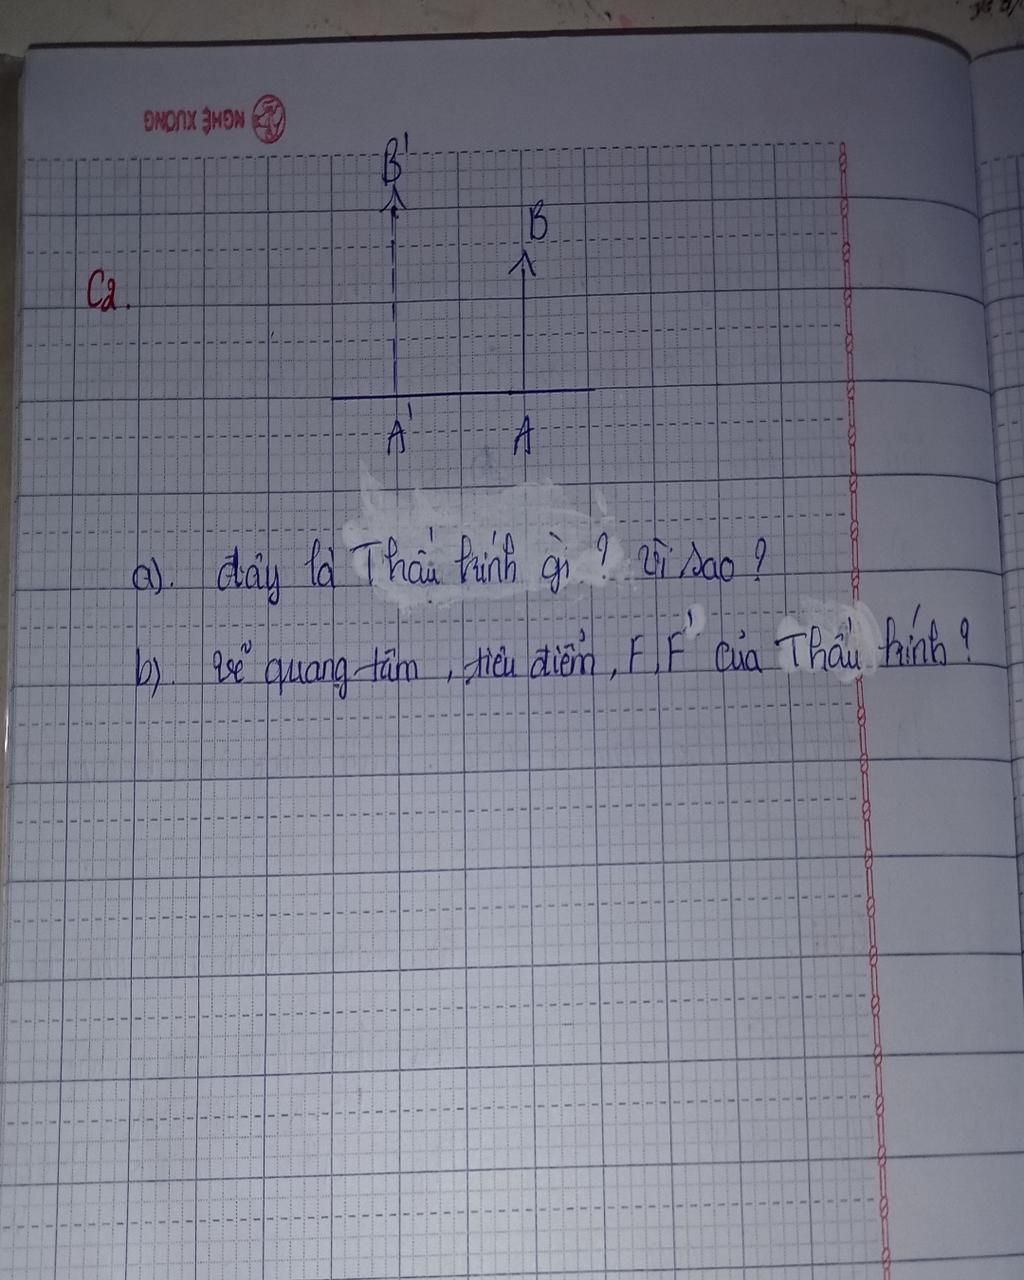 NGHỆ XƯƠNG
B'
B
C2.
A' A
a). đây là Thấu kính gì? vì sao?
b). vẽ quang tâm, tiêu điểm, F, F' của Thấu kính?